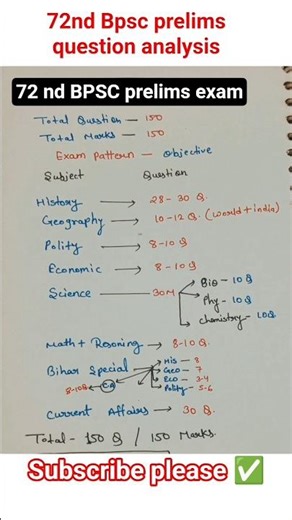 72nd Bpsc prelims
question analysis
72 nd BPSC prelims exam
Total Question — 150
Total Marks — 150
Exam Pattern — Objective
Subject Question
History → 28-30 Q.
Geography → 10-12 Q. (world+india)
Polity → 8-10 Q
Economic → 8-10 Q
Science → 30M
Bio - 10 Q
Phy - 10 Q
chemistry - 10Q
Math + Resoning → 8-10 Q.
Bihar Special
His - 8
Geo - 7
Eco - 3-4
Polity - 5-6
8-10Q ← CA
Current Affairs → 30 Q.
Total - 150 Q / 150 Marks.
Subscribe please ✅